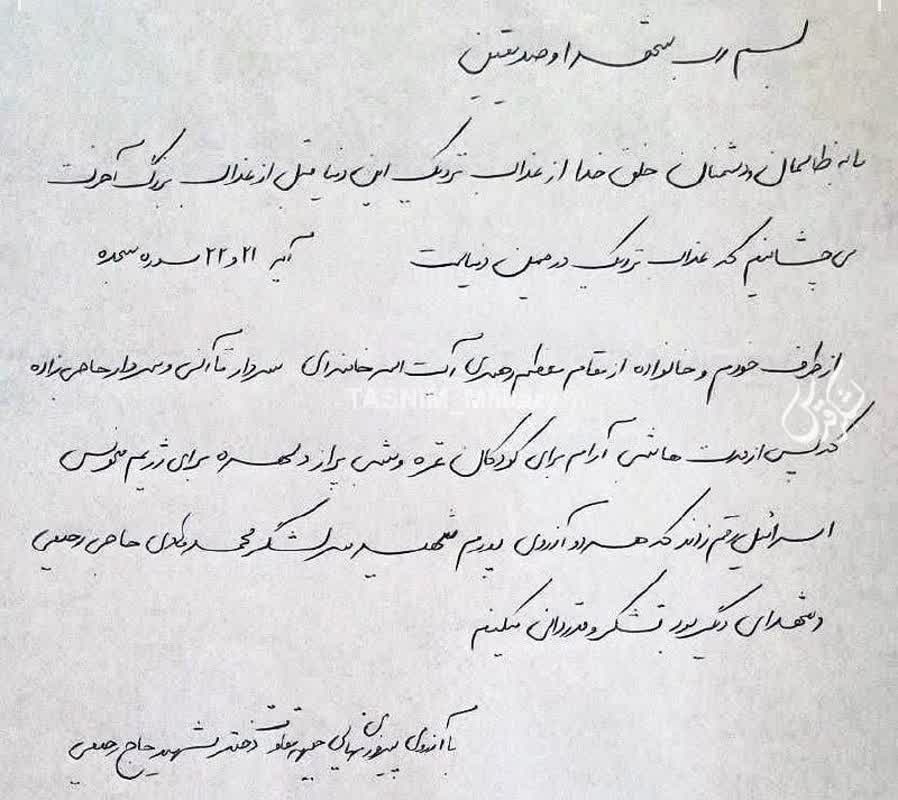 بسم رب الشهدا و صدیقین
ما به ظالمان و دشمنان خلق خدا از عذاب نزدیک این دنیا قبل از عذاب بزرگ آخرت
می چشانیم که عذاب نزدیک در همین دنیاست آیه ۲۱ و ۲۲ سوره سجده
از طرف خودم و خانواده از مقام معظم رهبری آیت الله خامنه ای سردار قاآنی و سردار حاجی زاده
که پس از مدت ها شبی آرام برای کودکان غزه و شب پر از دلهره برای رژیم منحوس
اسرائیل رقم زدند که هر دو آرزوی پدرم شهید سرلشکر محمد هادی حاجی رحیمی
و شهدای دیگر بود تشکر و قدردانی میکنیم
با آرزوی پیروزی نهایی جبهه مقاومت دختر شهید حاج رحیمی
TASNIM_Military